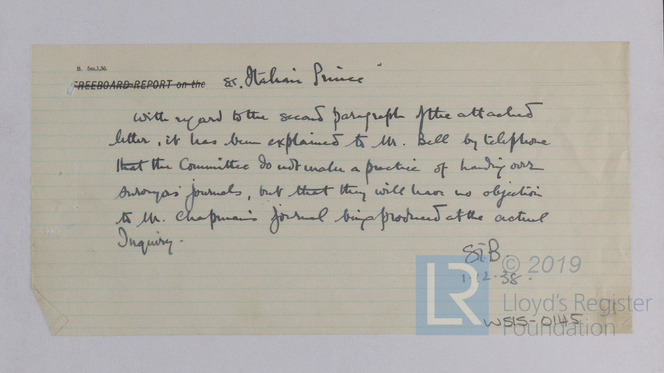 B. 5m.1.36.
FREEBOARD REPORT on the ss. "Italian Prince"
With regard to the second paragraph of the attached
letter, it has been explained to Mr. Bell by telephone
that the Committee do not make a practice of handing over
surveyors' journals, but that they will have no objection
to Mr. Chapman's journal being produced at the actual
Inquiry.
1.12.38.
LR © 2019
Lloyd's Register
Foundation
WSIS-0145